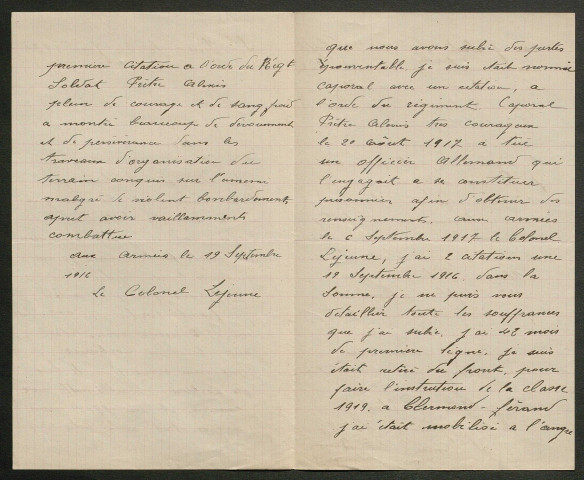 premiere citation a l'orde du Regt
Soldat Pretre Almis
plein de courage et de sang froid
a montré beaucoup de devouement
et de perseverance dans les
travaux d'organisation du
terrain conquis sur l'ennemi
malgré le violent bombardement,
apret avoir vaillamment
combattue
aux armées le 19 Septembre
1916
Le Colonel Lejeune
que nous avons subie des pertes
epouventable je suis était nommé
caporal avec un citation, a
l'orde du régiment Caporal
Pretre Almis tres courageux
le 20 août 1917 a tué
un officiée Allemand qui
l'engagait a se constituer
prisonnier afin d'obtenir des
renseignements. aux armées
le 6 Septembre 1917 le Colonel
Lejeune, j'ai 2 citations une
19 Septembre 1916 dans la
Somme, je ne puis vous
détaillier toute les souffrances
que j'ai subie, j'ai 42 mois
de premiere ligne. je suis
était retiré du front. pour
faire l'instrution de la classe
1919. a Clermond-férand
j'ai était mobilisé a l'ange